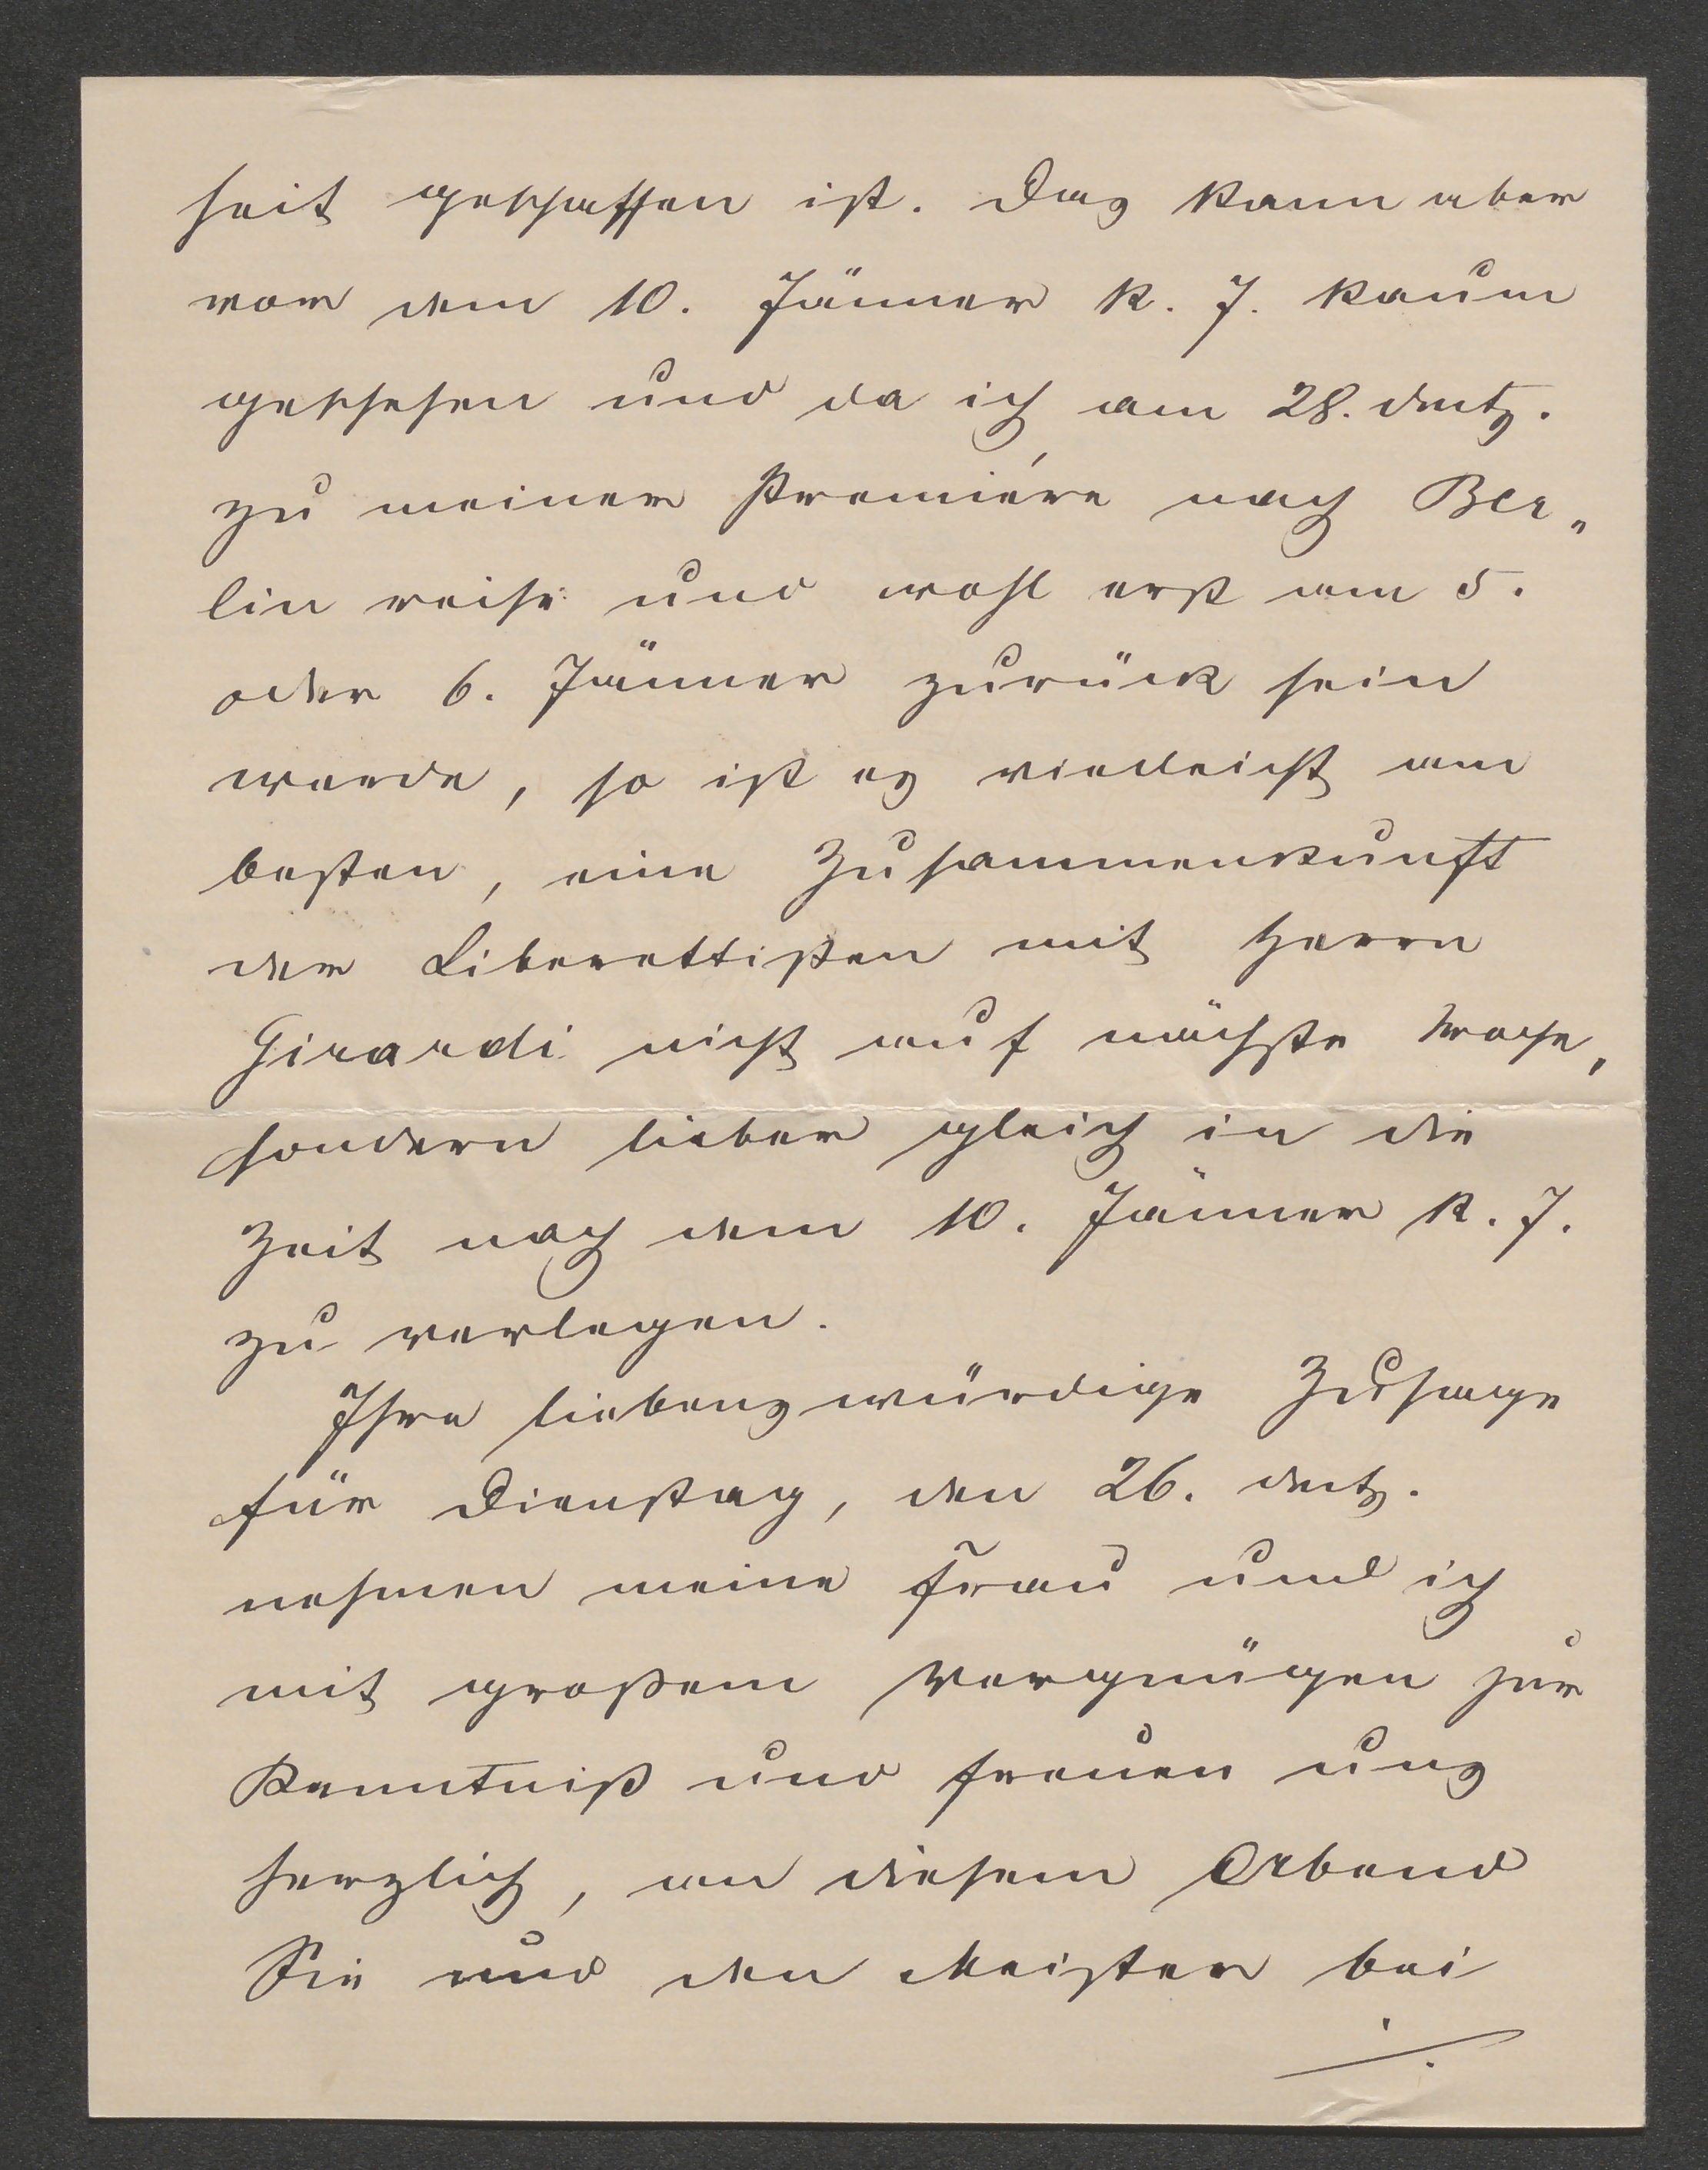 heit geschaffen ist. Das kann aber
vor dem 10. Jänner k. J. kaum
geschehen und da ich am 28. dMts.
zu meiner Premiére nach Ber„
lin reise und wohl erst am 5.
oder 6. Jänner zurück sein
werde, so ist es vielleicht am
besten, eine Zusammenkunft
der Liberettisten mit Herrn
Girardi nicht auf nächste Woche,
sondern lieber gleich in die
Zeit nach dem 10. Jänner k. J.
zu verlegen.
Ihre liebenswürdige Zusage
für Dienstag, den 26. dMts.
nehmen meine Frau und ich
mit großem Vergnügen zur
Kenntniß und freuen uns
herzlich, an diesem Abend
Sie und den Meister bei
./.